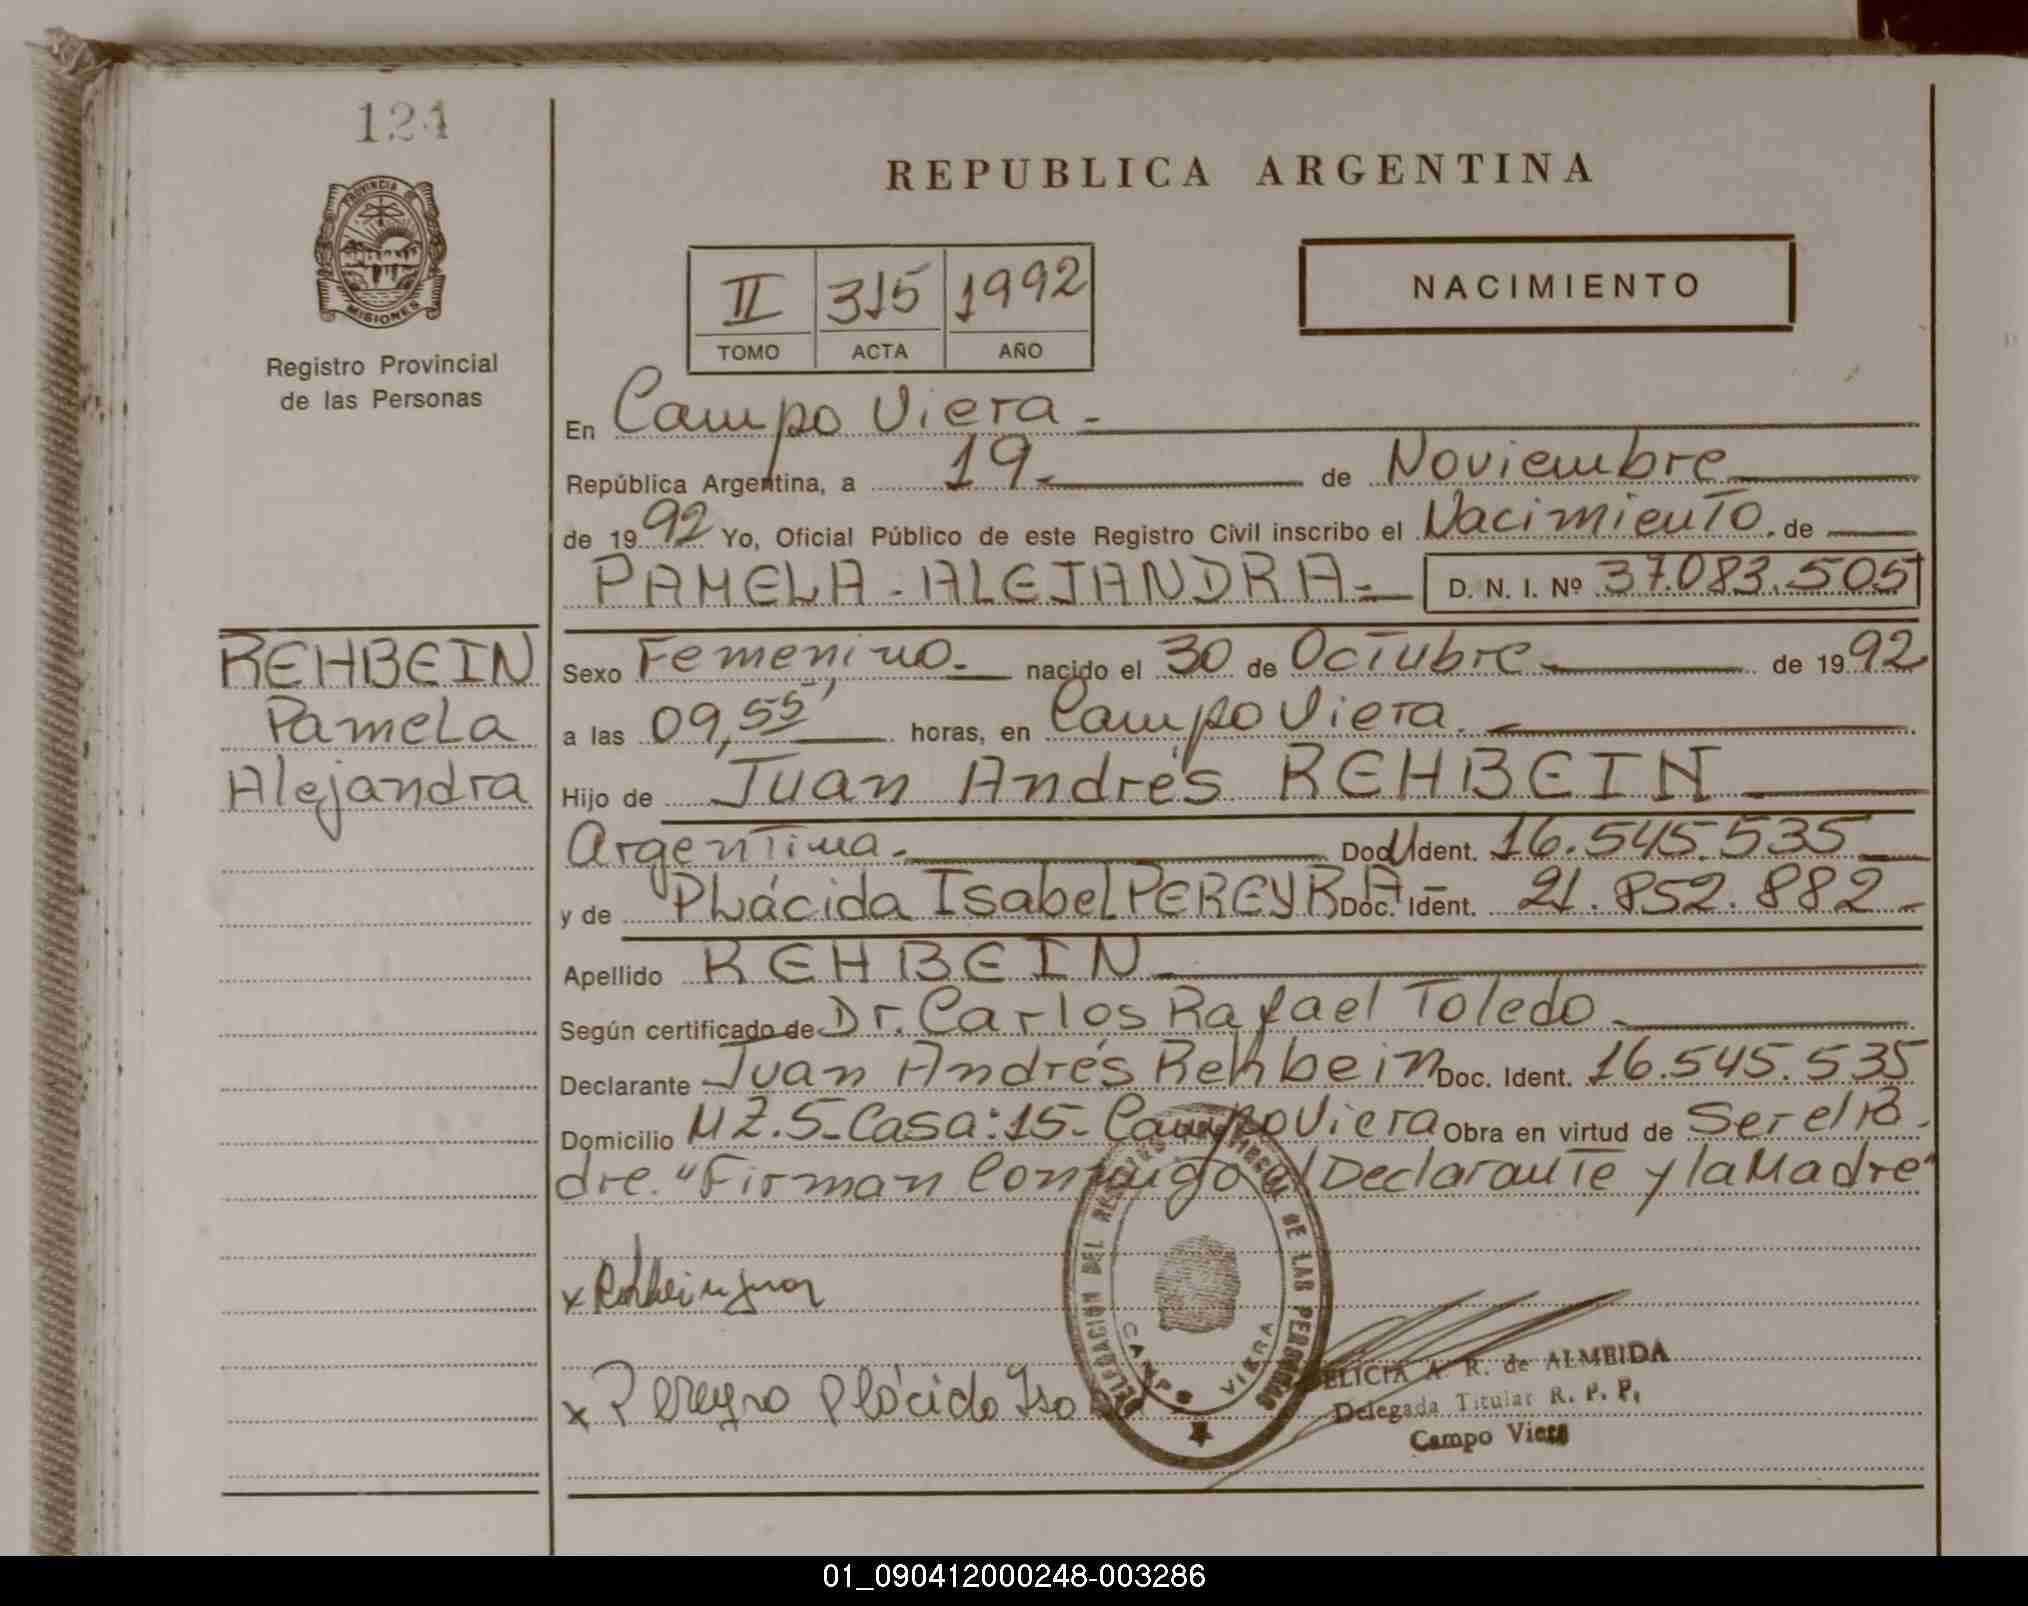 124
PROVINCIA DE
MISIONES
Registro Provincial
de las Personas
REPUBLICA ARGENTINA
II 315 1992
TOMO ACTA AÑO
NACIMIENTO
En Campo Viera -
República Argentina, a 19 de Noviembre
de 1992 Yo, Oficial Público de este Registro Civil inscribo el Nacimiento de
PAMELA - ALEJANDRA - D. N. I. Nº 37.083.505
REHBEIN
Pamela
Alejandra
Sexo Femenino. nacido el 30 de Octubre de 1992
a las 09,55' horas, en Campo Viera.
Hijo de Juan Andrés REHBEIN
Argentina. Doc. Ident. 16.545.535
y de Plácida Isabel PEREYRA - Doc. Ident. 21.852.882 -
Apellido REHBEIN
Según certificado de Dr. Carlos Rafael Toledo
Declarante Juan Andrés Rehbein Doc. Ident. 16.545.535
Domicilio MZ. 5 - Casa: 15 - Campo Viera Obra en virtud de Ser el Pa
dre. "Firman Conmigo el Declarante y la Madre"
x Rehbein Juan
x Pereyra Plácida Isa
DELEGACIÓN DEL DE LAS PERSONAS
CAMPO VIERA
FELICIA A. R. de ALMEIDA
Delegada Titular R. P. P.
Campo Viera
01_090412000248-003286